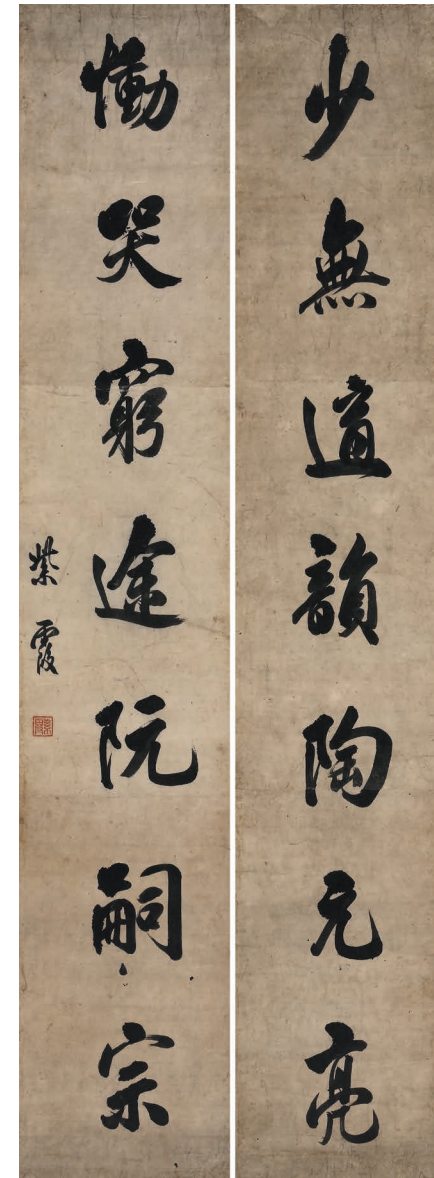 少無適韻陶元亮
慟哭窮途阮嗣宗
紫霞